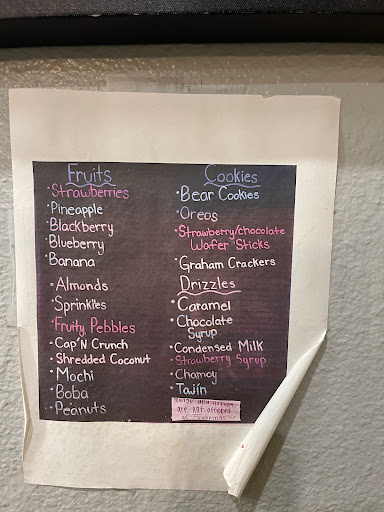 Fruits
• Strawberries
• Pineapple
• Blackberry
• Blueberry
• Banana
• Almonds
• Sprinkles
• Fruity Pebbles
• Cap'N Crunch
• Shredded Coconut
• Mochi
• Boba
• Peanuts
Cookies
• Bear Cookies
• Oreos
• Strawberry/chocolate
Wafer Sticks
• Graham Crackers
Drizzles
• Caramel
• Chocolate
Syrup
• Condensed Milk
• Strawberry Syrup
• Chamoy
• Tajín
are not accepted